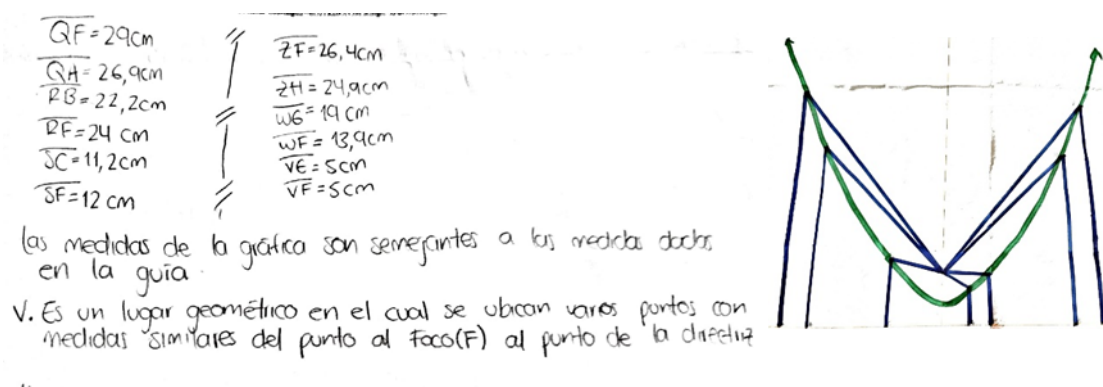 QF = 29cm
QA = 26,9cm
RB = 22,2cm
RF = 24 cm
SC = 11,2cm
SF = 12 cm
ZF = 26,4cm
ZH = 24,9cm
WG = 19 cm
WF = 13,9cm
VE = 5cm
VF = 5cm
las medidas de la gráfica son semejantes a las medidas dadas
en la guía.
V. Es un lugar geométrico en el cual se ubican varios puntos con
medidas similares del punto al Foco(F) al punto de la directriz